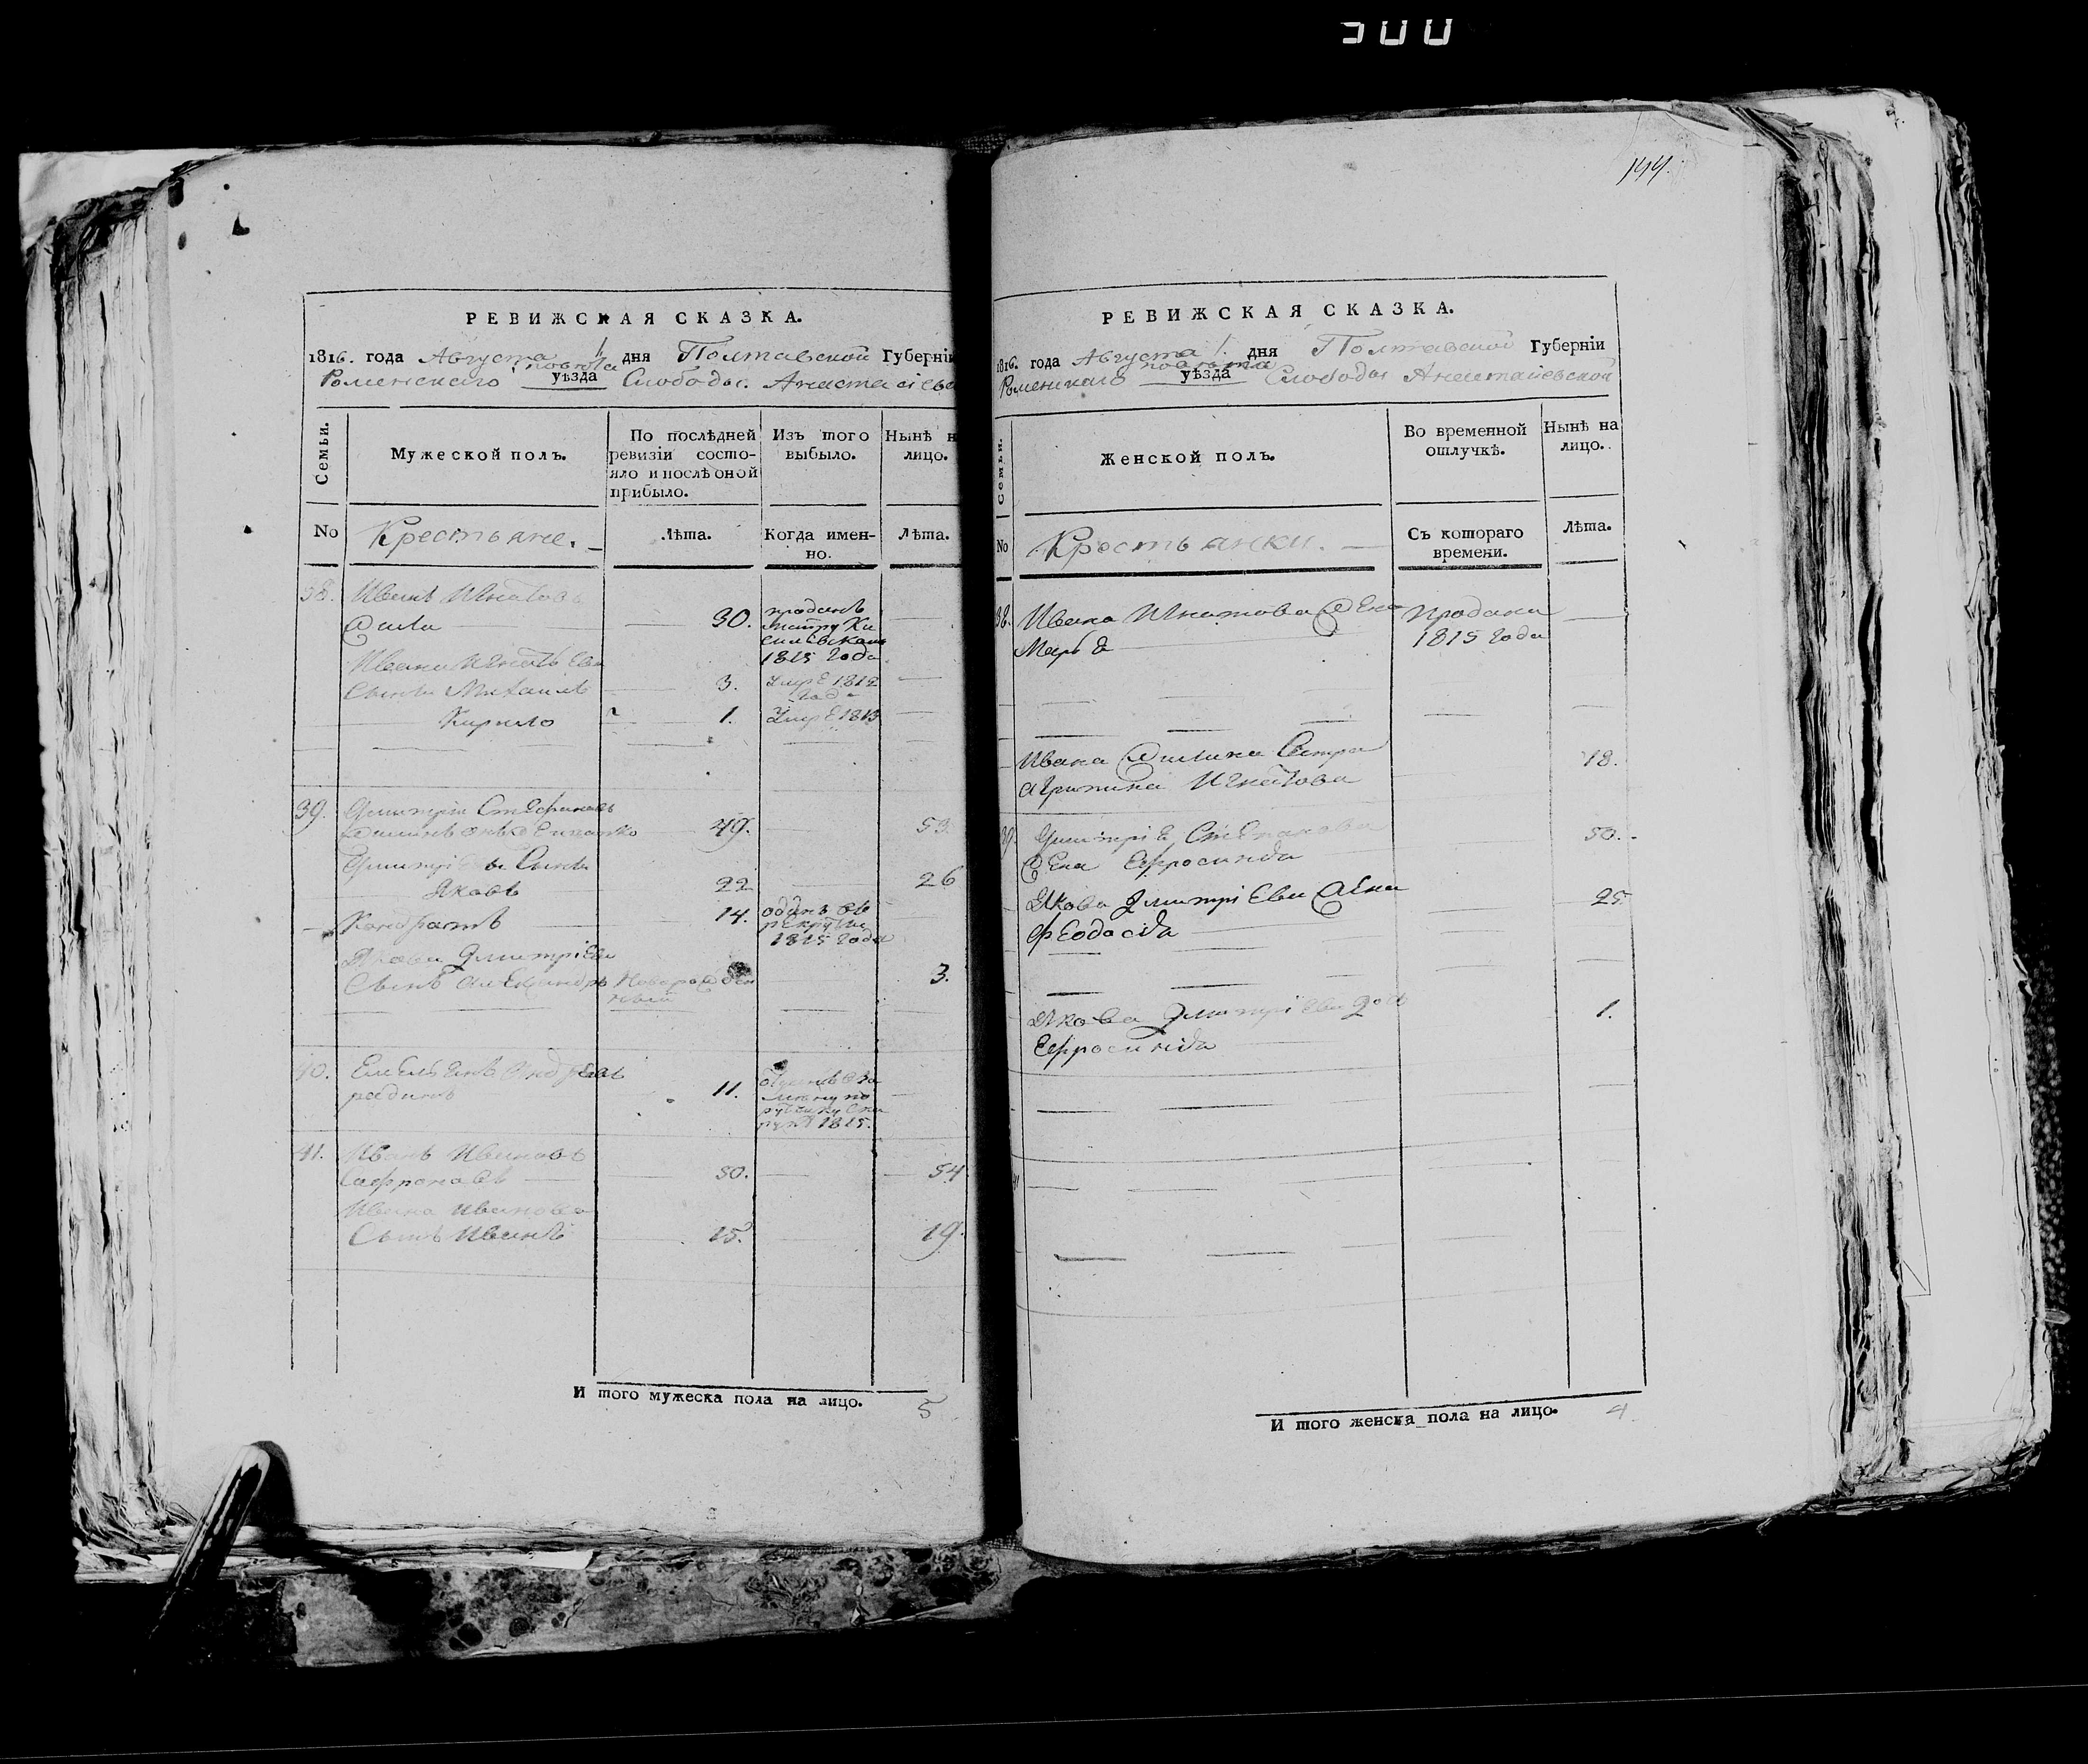 300
144.
РЕВИЖСКАЯ СКАЗКА.
1816. года Августа 1 дня Полтавской Губерніи
повѣта
Роменскаго уѣзда Слободы Анастасіевс
Семьи.
Мужеской полъ.
По послѣдней ревизіи состо-
яло и послѣ оной
прибыло.
Изъ того
выбыло.
Нынѣ н
лицо.
No
Крестьяне.
Лѣта.
Когда имен-
но.
Лѣта.
38. Иванъ Игнатовъ
30. проданъ
1815 года
Ивана Игнатьева
Сынъ Михаилъ 3. Умре 1812
года
Кирило 1. Умре 1813
39. Дмитрій Стефановъ
49. 53.
Дмитріевы Сыны
Яковъ 22 26
Кондратъ 14. отданъ въ
рекруты
1815 года
Якова Дмитріева
Сынъ Александръ Новорожден
ный 3.
40. Емельянъ Андреевъ
11.
1815.
41. Иванъ Ивановъ
Сафроновъ 50. 54
Ивана Иванова
Сынъ Иванъ 15. 19.
И того мужеска пола на лицо. 5
РЕВИЖСКАЯ СКАЗКА.
1816. года Августа 1. дня Полтавской Губерніи
повѣта
Роменскаго уѣзда Слободы Анастасіевской
Семьи.
Женской полъ.
Во временной
отлучкѣ.
Нынѣ на
лицо.
No
Крестьянки.
Съ котораго
времени.
Лѣта.
38. Ивана Игнатова жена продана
Марья 1815 года
Ивана Сестра 18.
Агрипина Игнатова
39. Дмитрія Стефанова 50.
жена Ефросинія
Якова Дмитріева жена 25.
Феодосія
Якова Дмитріева дочь 1.
Ефросинія
И того женска пола на лицо. 4.